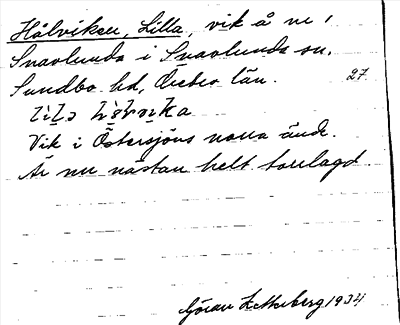 Hålviken, Lilla, vik å nr 1
Snavlunda i Snavlunda sn.
Sundbo hd, Örebro län. 27.
Vik i Östersjöns norra ände.
Är nu nästan helt torrlagd.
Göran Zetterberg 1934